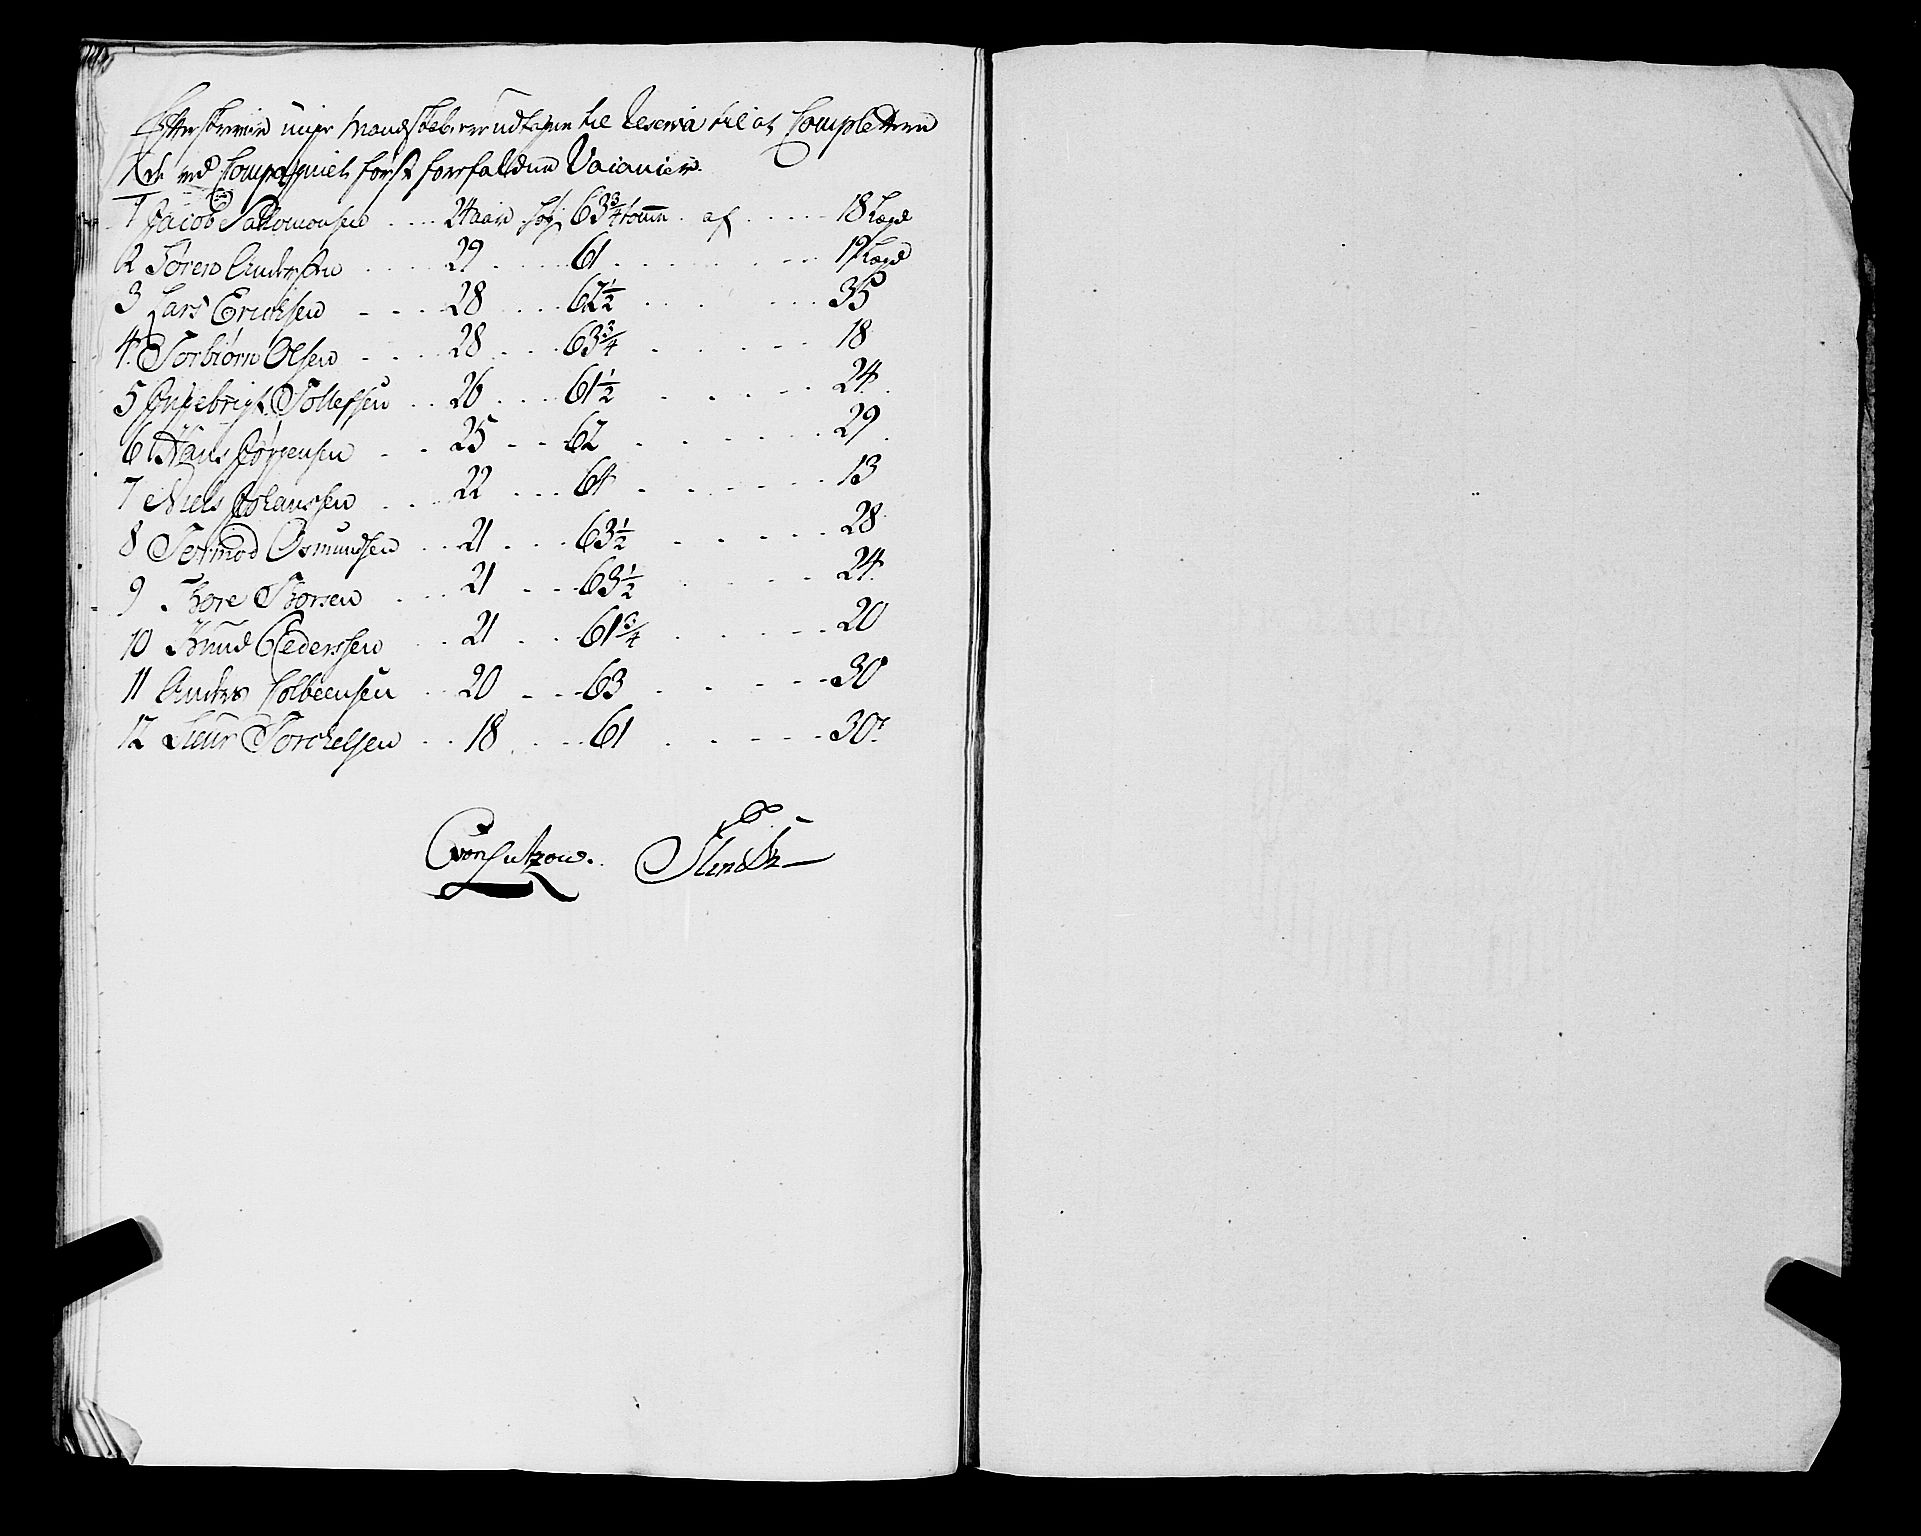 Efterskrevne unge Mandskab er udtagne til Reserva til at Complettere
de ved Compagniet først forefaldene Vacancier.
1 Jacob Sallomonsen .... 24 aar høj 63¾ tomme . af ..... 18 Lægd
2 Søren Andersen .... 29 ..... 61 ........ 19 Lægd
3 Lars Erichsen - - - 28 .... 62½ ...... 35
4. Torbiørn Olsen .... 28 .... 63¾ ...... 18
5 Ingebrigt Tollefsen .. 26 .... 61½ ..... 24.
6 Hans Jørgensen . . 25 - - 62 ...... 29.
7 Niels Johanssen ... 22 .... 64 ...... 13
8 Tormod Osmundsen .. 21 .... 63½ ..... 28.
9 Thore Thorsen ... 21 - - - 63½ .... 24.
10 Knud Pederssen .. 21 .... 61¾ .... 20
11 Anders Colbeensen .. 20 - - - 63 ..... 30
12 Siuur Torchelsen .. 18 .... 61 ..... 30.
C von Lutzow.